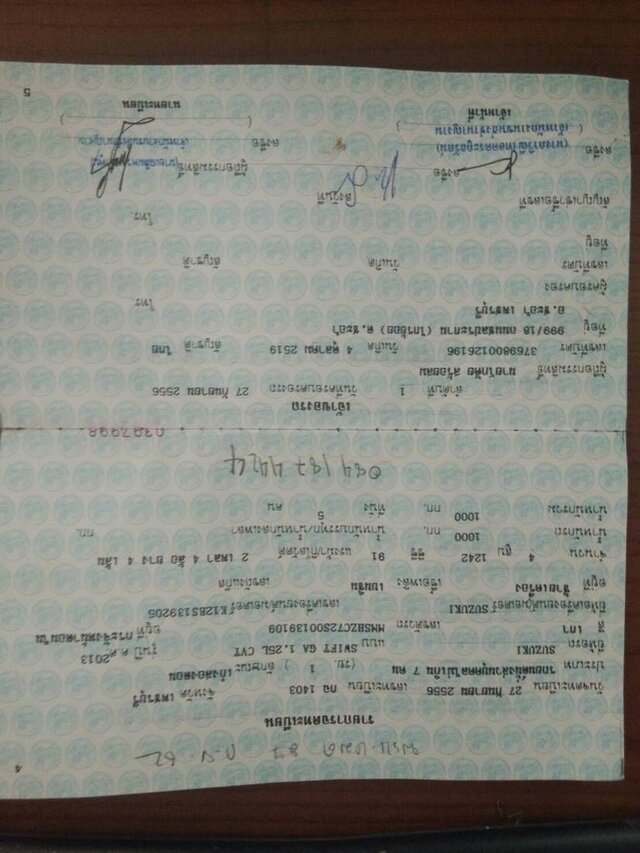 4
พรบ. หมด 27 ก.ย. 62
รายการจดทะเบียน
วันจดทะเบียน 27 กันยายน 2556 เลขทะเบียน กฉ 1403 จังหวัด เพชรบุรี
ประเภท รถยนต์นั่งส่วนบุคคลไม่เกิน 7 คน (รย. 1 ) ลักษณะ เก๋งสองตอน
ยี่ห้อรถ SUZUKI แบบ SWIFT GA 1.25L CVT รุ่นปี ค.ศ. 2013
สี เทา เลขตัวรถ MMSHZC72S00139109 อยู่ที่
ยี่ห้อเครื่องยนต์/มอเตอร์ SUZUKI เลขเครื่องยนต์/มอเตอร์ K12BS139205
อยู่ที่ ซ้ายเครื่อง เชื้อเพลิง เบนซิน เลขถังแก๊ส
จำนวน 4 สูบ 1242 ซีซี 91 แรงม้า/กิโลวัตต์ 2 เพลา 4 ล้อ ยาง 4 เส้น
น้ำหนักรถ 1000 กก. น้ำหนักบรรทุก/น้ำหนักลงเพลา กก.
น้ำหนักรวม 1000 กก. ที่นั่ง 5 คน
เจ้าของรถ
ลำดับที่ 1 วันที่ครอบครองรถ 27 กันยายน 2556
ผู้ถือกรรมสิทธิ์
เลขที่บัตร 3769800126196 วันเกิด 4 ตุลาคม 2519 สัญชาติ ไทย
ที่อยู่ 999/18 ต.ชะอำ
อ.ชะอำ เพชรบุรี โทร
ผู้ครอบครอง
เลขที่บัตร วันเกิด สัญชาติ
ที่อยู่
โทร
สัญญาเช่าซื้อเลขที่ ลงวันที่
ลงชื่อ ผู้ถือกรรมสิทธิ์
ลงชื่อ ลงชื่อ
เจ้าหน้าที่ นายทะเบียน
5